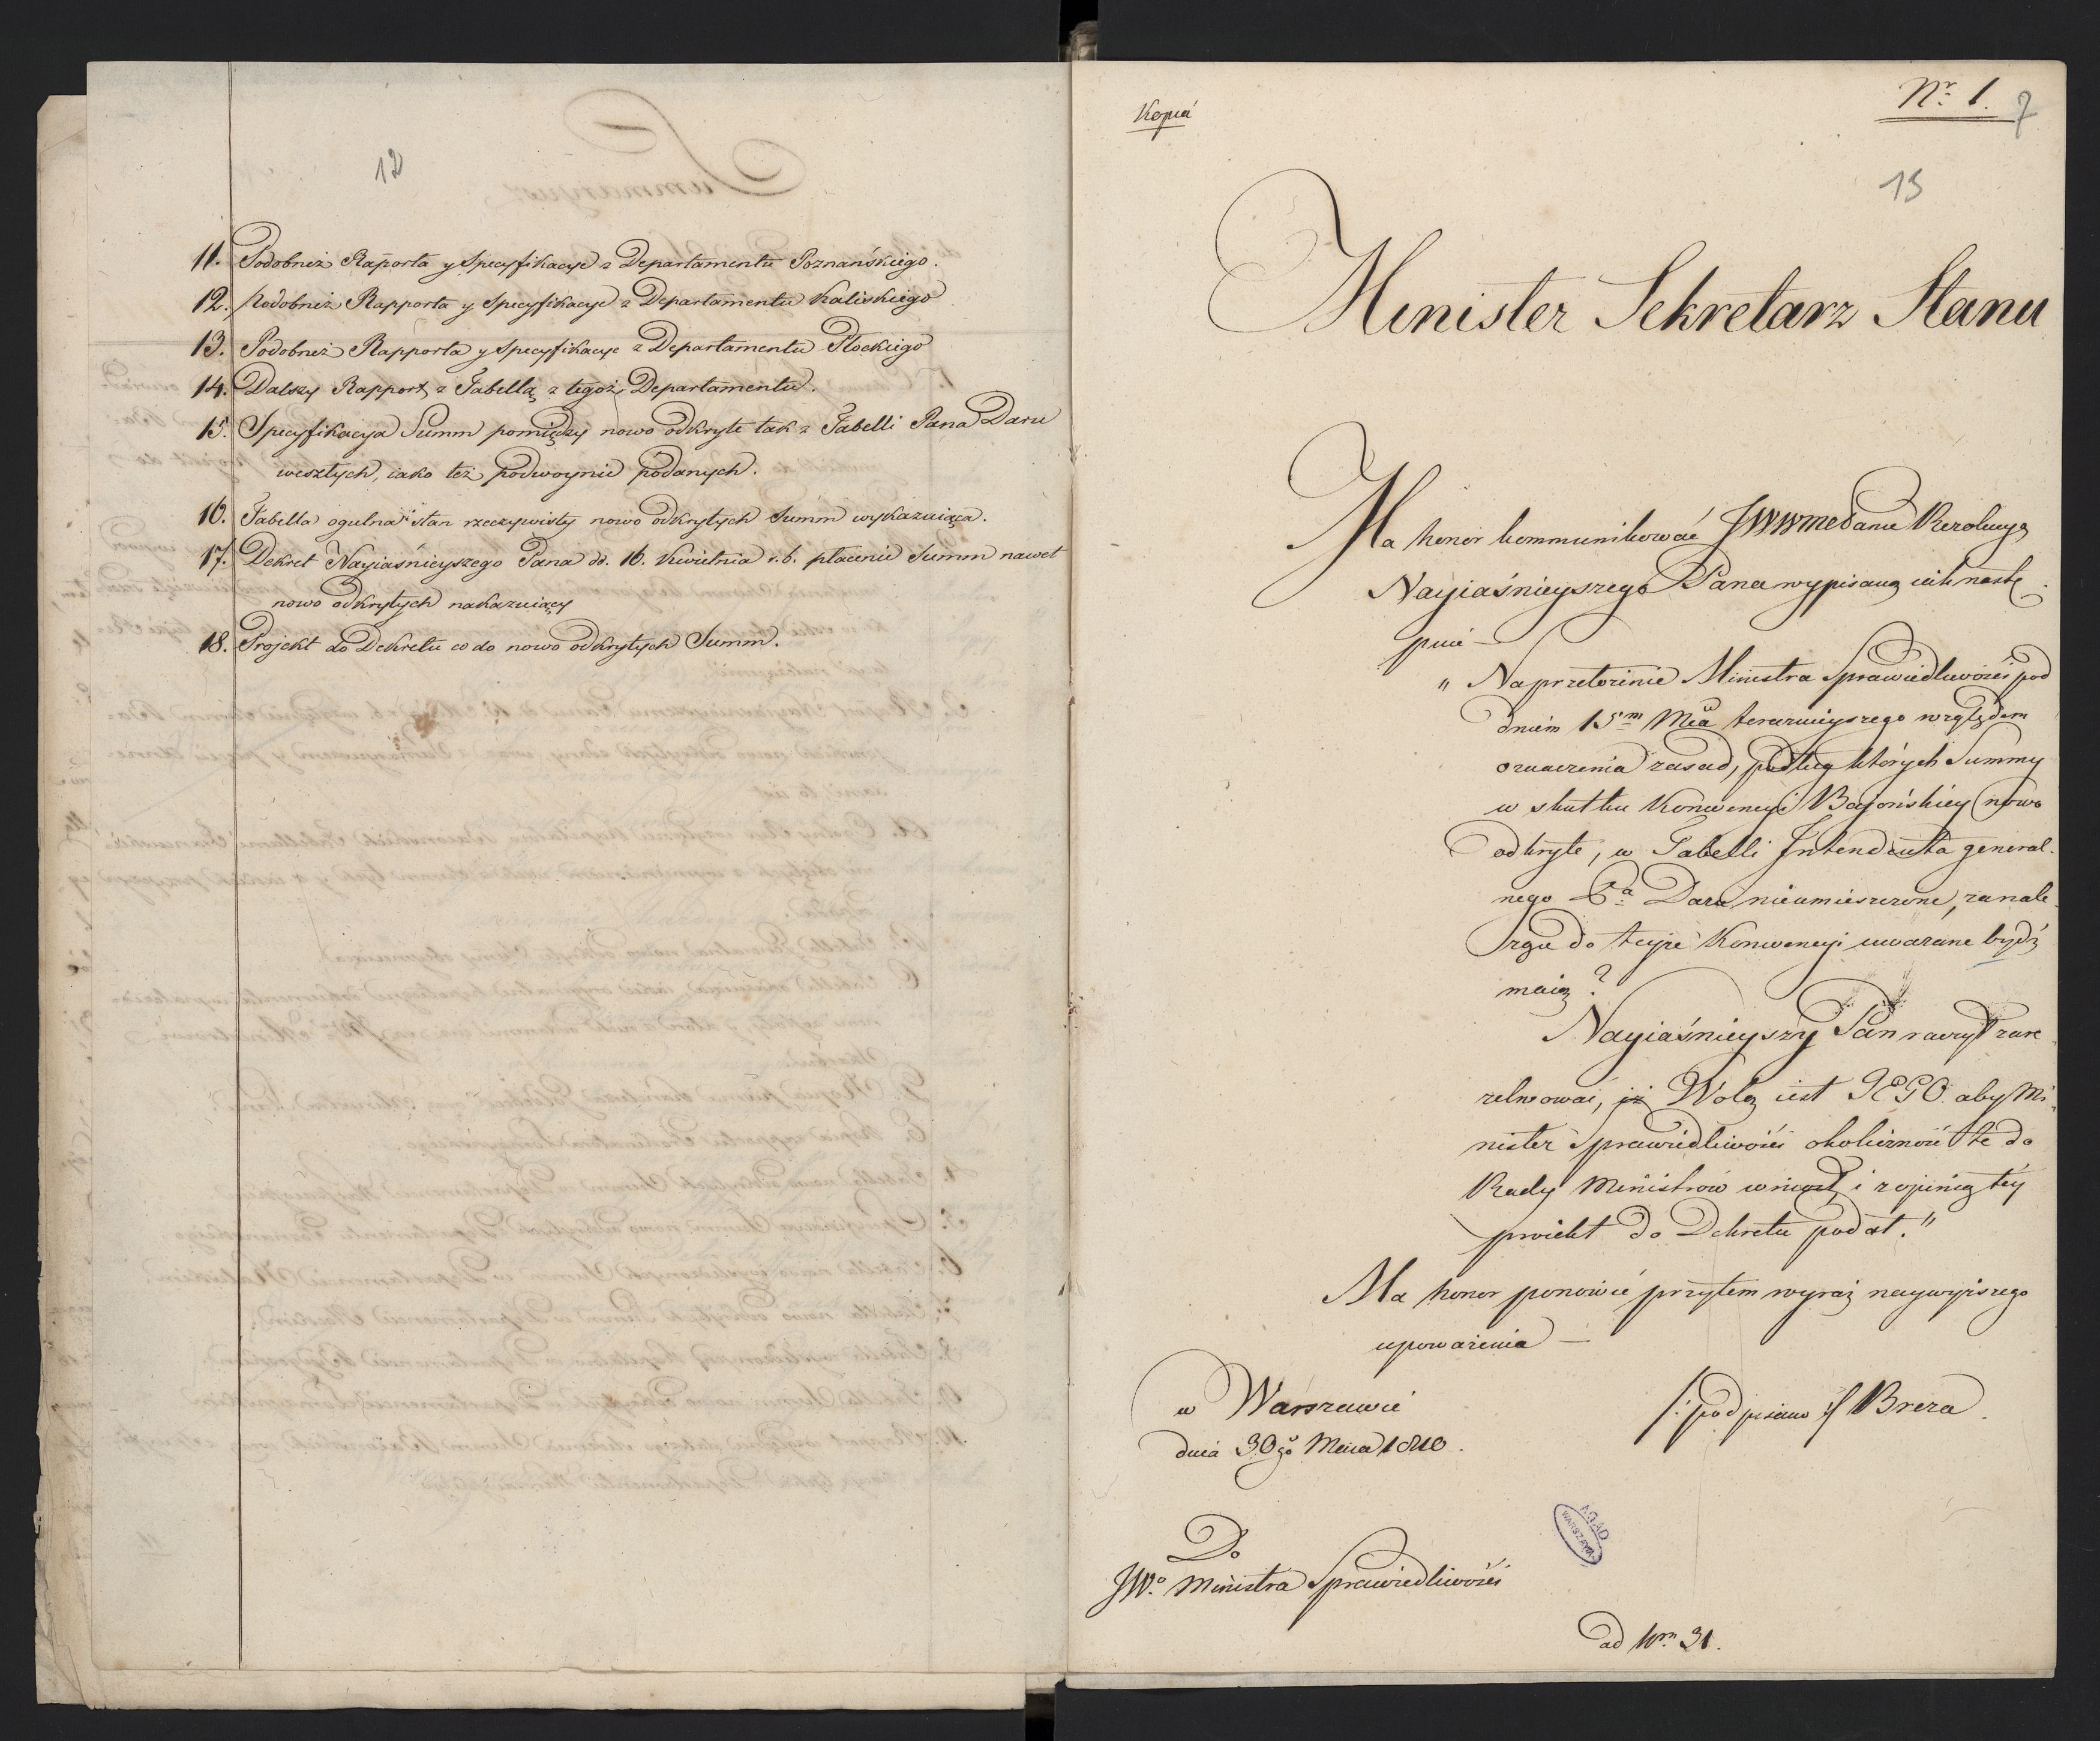 12
11. Podobnież Raporta y Specyfikacye z Departamentu Poznańskiego.
12. Podobnież Rapporta y Specyfikacye z Departamentu Kaliskiego
13. Podobnież Rapporta y Specyfikacye z Departamentu Płockiego
14. Dalszy Rapport z Tabellą z tegoż Departamentu.
15. Specyfikacya Summ pomiędzy nowo odkryte tak z Tabelli Pana Daru
weszłych, iako też podwoynie podanych.
16. Tabella ogulna stan rzeczywisty nowo odkrytych Summ wykazuiąca.
17. Dekret Nayiaśnieyszego Pana dd. 16. Kwietnia r. b. płacenie Summ nawet
nowo odkrytych nakazuiący
18. Projekt do Dekretu co do nowo odkrytych Summ.
Kopia
Nr. 1.
7
13
Minister Sekretarz Stanu
Ma honor kommunikować Rezolucyą
Nayiaśnieyszego Pana wypisaną iak nastę
puie —
„ Na przełożenie Ministra Sprawiedliwości pod
dniem 15m Mca teraznieyszego względem
oznaczenia zasad, podług których Summy
w skutku Konwencyi Bajońskiey nowo
odkryte, w Tabelli Intendenta general-
nego Pa Daru nieumieszczone, za nale-
żące do teyże Konwencyi uważane bydź
maią?
Nayiaśnieyszy Pan raczył zare
zolwować, iż Wolą iest JEGO aby Mi-
nister Sprawiedliwości okoliczność tę do
Rady Ministrów wniosł i z opinią tey
proiekt do Dekretu podał."
Ma honor ponowić przytem wyraz naywyższego
upoważenia —
w Warszawie
dnia 30go Maia 1810.
/: podpisano :/ Breza.
Do
JWo Ministra Sprawiedliwości
AGAD
WARSZAWA
ad Nrm 31.